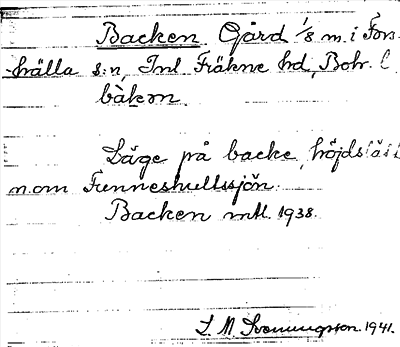 Backen Gård 1/8 m. i For-
hälla s:n, Inl Fräkne hd, Boh. l
bàkən
Läge på backe, höjdslätt
n om Funneshultssjön.
Backen mtl. 1938.
1941.